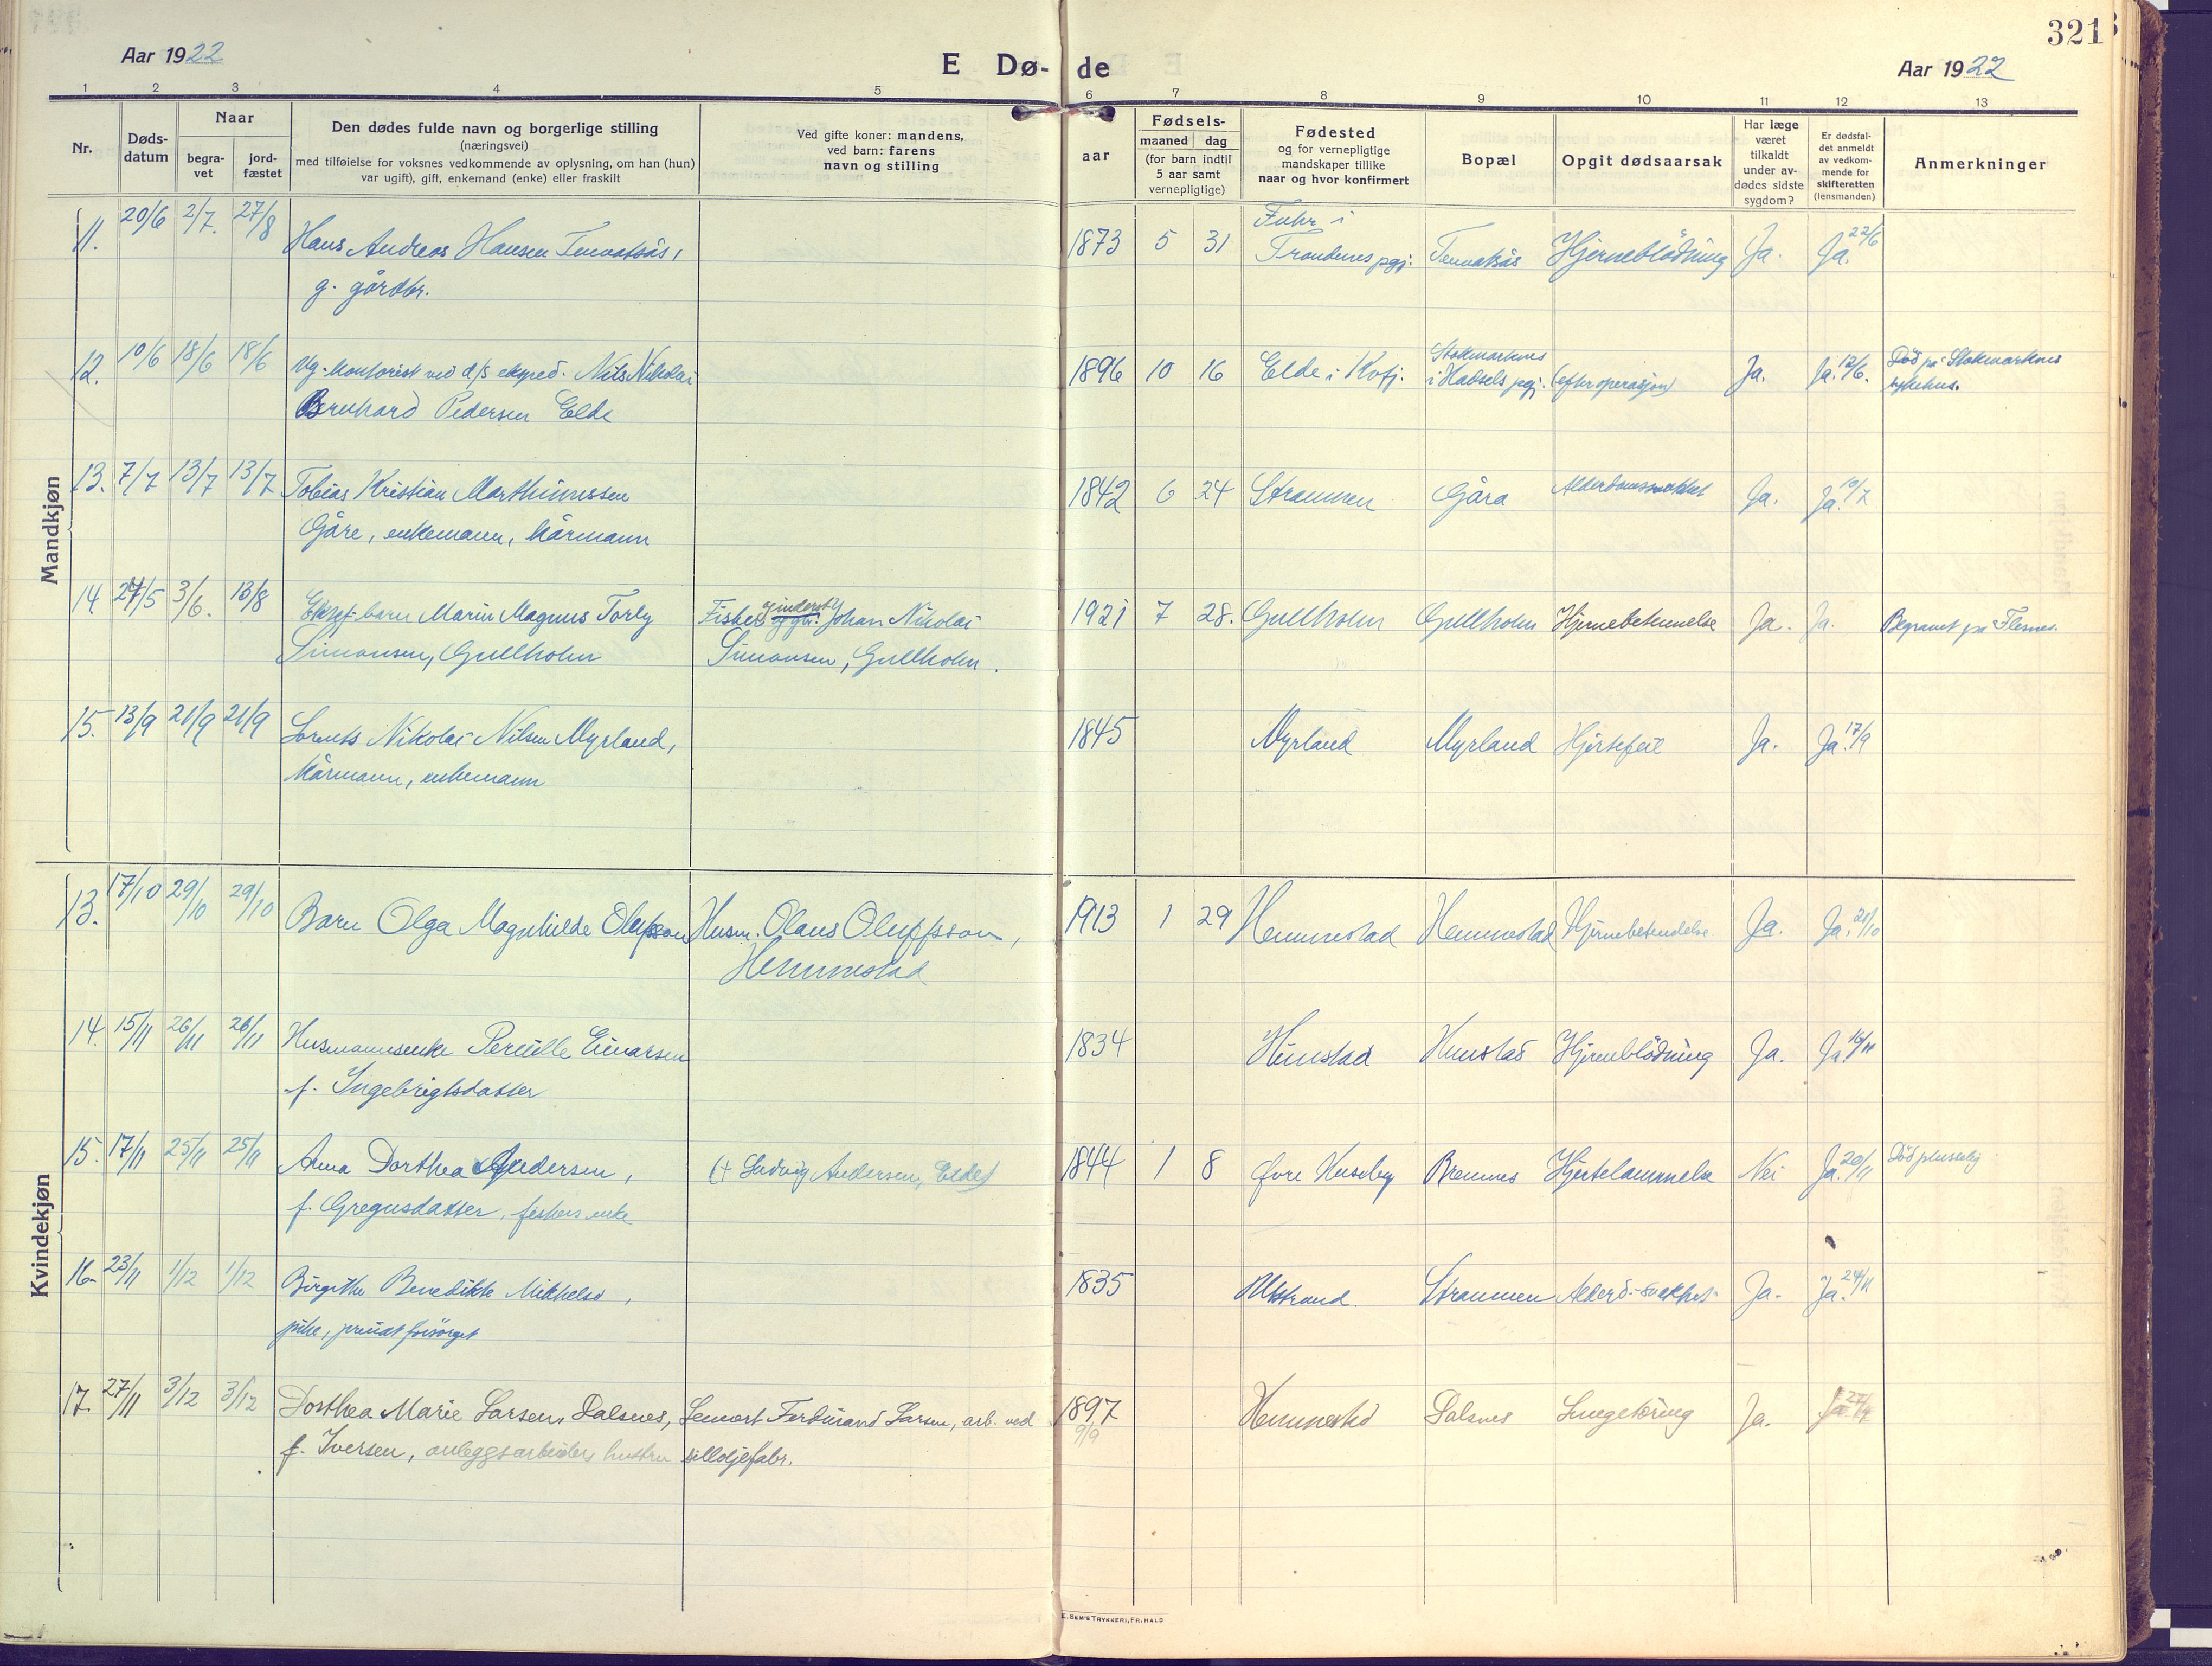 321
Aar 1922
E Dø- de
Aar 1922
1 2 3 4 5 6 7 8 9 10 11 12 13
Nr.
Døds-
datum
Naar
begra-
vet
jord-
fæstet
Den dødes fulde navn og borgerlige stilling
(næringsvei)
med tilføielse for voksnes vedkommende av oplysning, om han (hun)
var ugift), gift, enkemand (enke) eller fraskilt
Ved gifte koner: mandens,
ved barn: farens
navn og stilling
aar
Fødsels-
maaned dag
(for barn indtil
5 aar samt
vernepligtige)
Fødested
og for vernepligtige
mandskaper tillike
naar og hvor konfirmert
Bopæl
Opgit dødsaarsak
Har læge
været
tilkaldt
under av-
dødes sidste
sygdom?
Er dødsfal-
det anmeldt
av vedkom-
mende for
skifteretten
(lensmanden)
Anmerkninger
Mandkjøn
11. 20/6 2/7. 27/8 Hans Andreas Hansen 1873 5 31 Trondenes pgj. Hjerneblödning Ja. Ja. 22/6
g. gårdbr.
12. 10/6 18/6 18/6 Ug. kontorist ved d/s exped. Nils Nikolai 1896 10 16 Elde i Kvfj. Stokmarknes i Hadsels pgj. (efter operasjon) Ja. Ja. 12/6. Död på Stokmarknes
Bernhard Pedersen Elde sykehus.
13. 7/7 13/7 13/7 Tobias Kristian Marthinussen 1842 6 24 Straumen Gåra Alderdomssvakhet Ja. Ja. 10/7
Gåre, enkemann, kårmann
14. 27/5 3/6. 13/8 Ektef. barn Marin Magnus Torly Fisker Johan Nikolai 1921 7 28. Gullholm Gullholm Hjernebetennelse Ja. Ja. Begravet på Flesnes.
Simonsen, Gullholm Simonsen, Gullholm.
15. 13/9 21/9 21/9 Lorents Nikolai Nilsen Myrland, 1845 Myrland Myrland Hjertefeil Ja. Ja. 17/9
kårmann, enkemann
Kvindekjøn
13. 17/10 29/10 29/10 Barn Olga Magnhilde Olufsson Husm. Olaus Oluffsson, 1913 1 29 Hemmestad Hemmestad Hjernebetendelse. Ja. Ja. 21/10
Hemmestad
14. 15/11 26/11 26/11 Husmannsenke Pernille Einarsen 1834 Hunstad Hunstad Hjerneblödning Ja. Ja 16/11
f. Ingebrigtsdatter
15. 17/11 25/11 25/11 Anna Dorthea Andersen, († Ludvig Andersen, Elde) 1844 1 8 Øvre Huseby Bremnes Hjertelammelse Nei Ja. 20/11 Död plusselig
f. Gregusdatter, fiskers enke
16. 23/11 1/12 1/12 Birgithe Benedikte Mikkelsd, 1835 Straumen Alderd.-svakhet. Ja. Ja. 24/11
pike, privat forsörget
17. 27/11 3/12 3/12 Dorthea Marie Larsen, Dalsnes, Lenvart Ferdinand Larsen, arb. ved 1897 9/9 Hemmestad Dalsnes Lungetæring Ja. Ja
f. Iversen, anleggsarbeiders hustru silloljefabr.
E. SEM'S TRYKKERI, FR.HALD